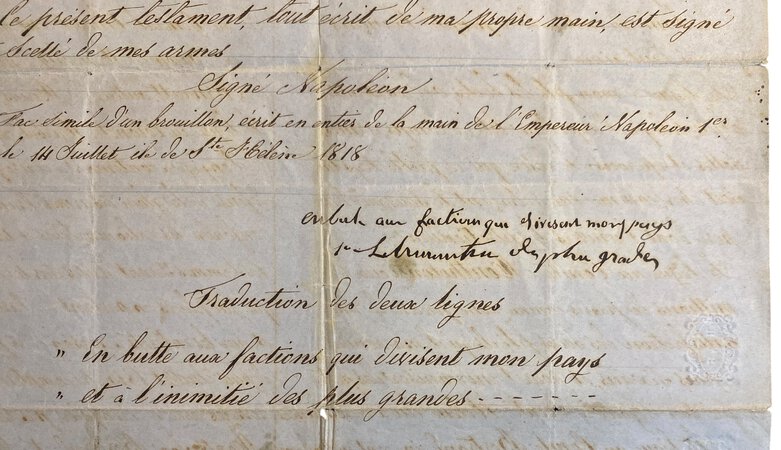 le présent testament, tout écrit de ma propre main, est signé
scellé de mes armes
Signé Napoléon
Fac simile d'un brouillon, écrit en entier de la main de l'Empereur Napoléon 1er
le 14 Juillet île de Ste Hélène 1818
en but aux factions qui divisent mon pays
des plus grandes
Traduction des deux lignes
" En butte aux factions qui divisent mon pays
" et à l'inimitié des plus grandes - - - - - - -